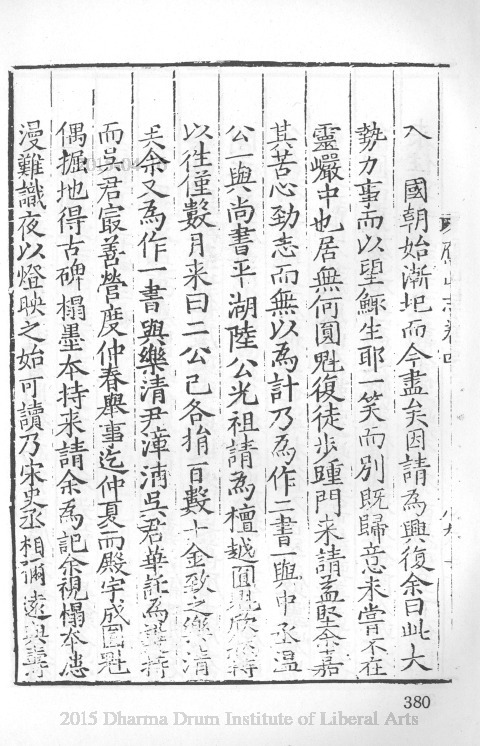 入 國朝始漸圮而今盡矣因請為興復余曰此大
勢力事而以望鯫生耶一笑而別既歸意未嘗不在
靈巖中也居無何圓魁復徒步踵門来請益堅余嘉
其苦心勁志而無以為計乃為作二書一與中丞温
公一與尚書平湖陸公光祖請為檀越圓魁欣然持
以往僅數月来曰二公已各捐百數十金致之樂清
矣余又為作一書與樂清尹
吳君華託為
而吳君最善營度仲春舉事迄仲夏而殿宇成圓魁
偶掘地得古碑榻墨本持来請余為記余視榻本
漫難識夜以燈映之始可讀乃宋史丞相彌遠與
380
2015 Dharma Drum Institute of Liberal Arts